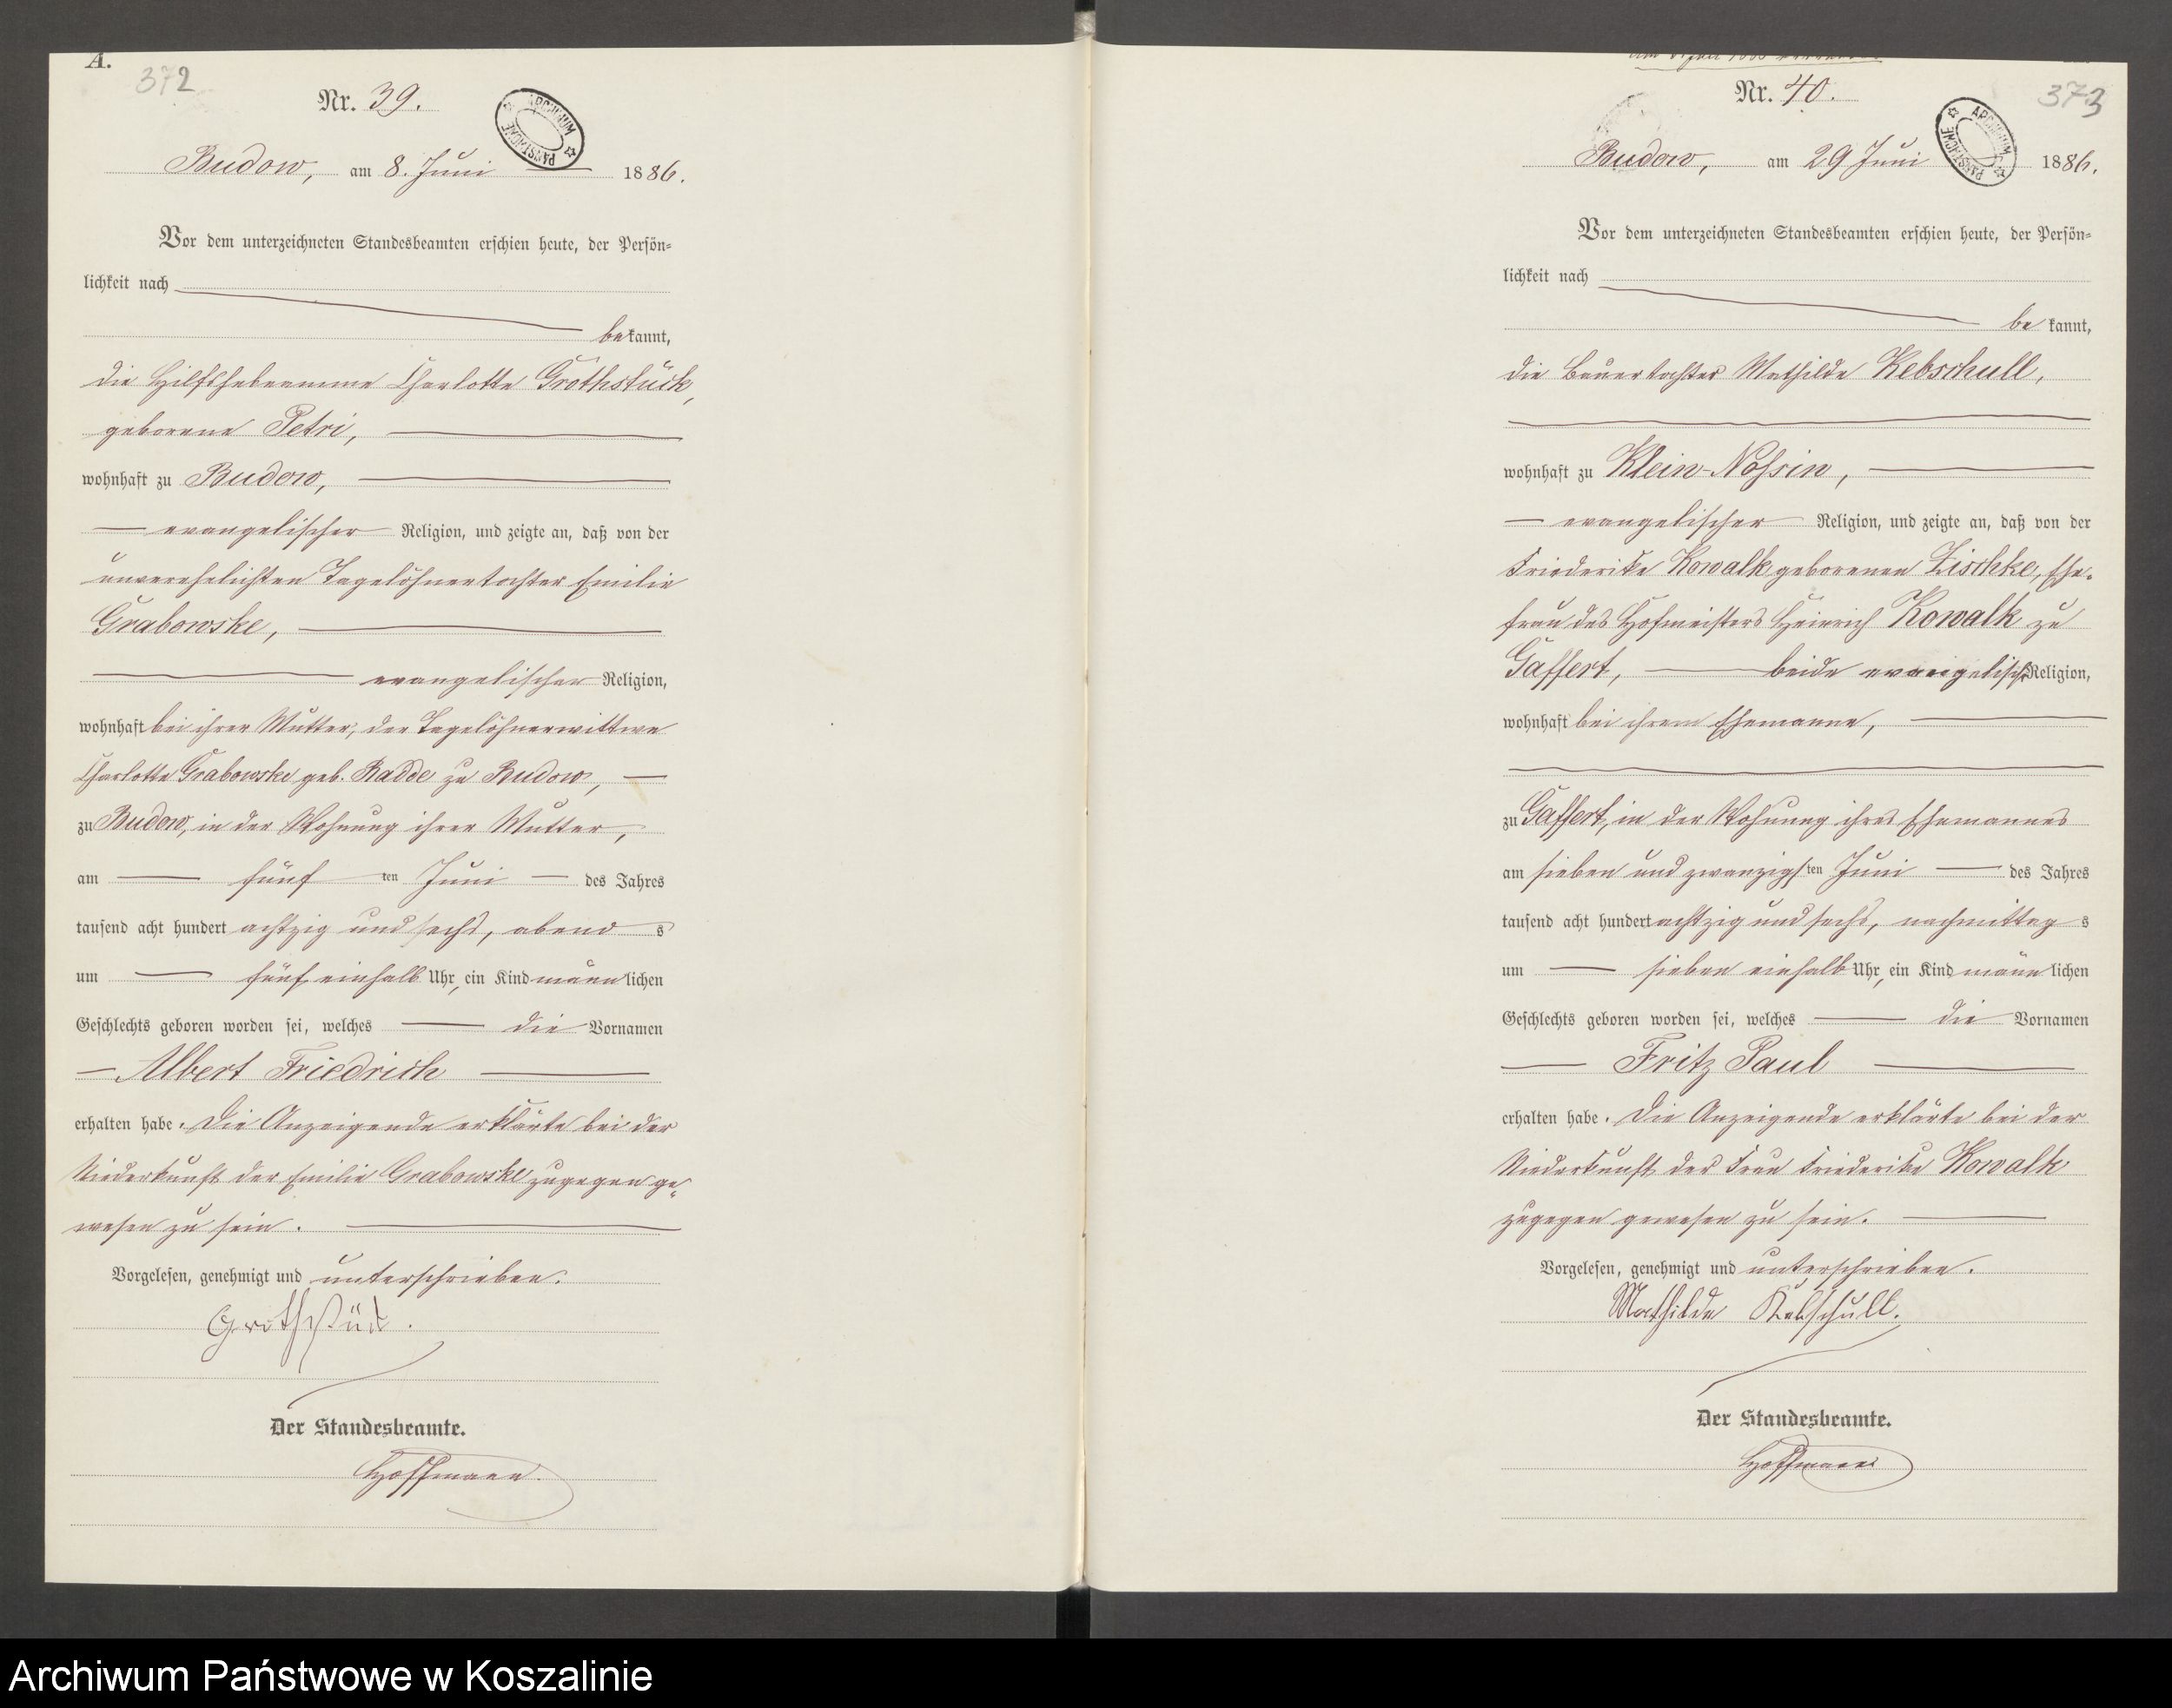 A.
372
Nr. 39.
ARCHIWUM PAŃSTWOWE
Budow, am 8. Juni 1886.
Vor dem unterzeichneten Standesbeamten erschien heute, der Persön=
lichkeit nach
bekannt,
die Hilfshebeamme Charlotte Grothstück,
geborene Petri,
wohnhaft zu Budow,
evangelischer Religion, und zeigte an, daß von der
unverehelichten Tagelöhnertochter Emilie
Grabowske,
evangelischer Religion,
wohnhaft bei ihrer Mutter, der Tagelöhnerwittwe
Charlotte Grabowske geb. Radde zu Budow,
zu Budow, in der Wohnung ihrer Mutter,
am fünf ten Juni des Jahres
tausend acht hundert achtzig und sechs, abend s
um fünf einhalb Uhr, ein Kind männlichen
Geschlechts geboren worden sei, welches die Vornamen
Albert Friedrich
erhalten habe. Die Anzeigende erklärte bei der
Niederkunft der Emilie Grabowske zugegen ge=
wesen zu sein.
Vorgelesen, genehmigt und unterschrieben.
Grothstück.
Der Standesbeamte.
Hoffmann.
Nr. 40.
373
ARCHIWUM PAŃSTWOWE
Budow, am 29 Juni 1886.
Vor dem unterzeichneten Standesbeamten erschien heute, der Persön=
lichkeit nach
be kannt,
die Bauertochter Mathilde Kebschull,
wohnhaft zu Klein-Nossin,
evangelischer Religion, und zeigte an, daß von der
Friederike Kowalk geborenen Zischke, Ehe=
frau des Hofmeisters Heinrich Kowalk zu
Gaffert, beide evangelisch Religion,
wohnhaft bei ihrem Ehemanne,
zu Gaffert, in der Wohnung ihres Ehemannes
am sieben und zwanzigsten Juni des Jahres
tausend acht hundert achtzig und sechs, nachmittag s
um sieben einhalb Uhr, ein Kind männ lichen
Geschlechts geboren worden sei, welches die Vornamen
Fritz Paul
erhalten habe. Die Anzeigende erklärte bei der
Niederkunft der Frau Friederike Kowalk
zugegen gewesen zu sein.
Vorgelesen, genehmigt und unterschrieben.
Mathilde Kebschull.
Der Standesbeamte.
Hoffmann
Archiwum Państwowe w Koszalinie